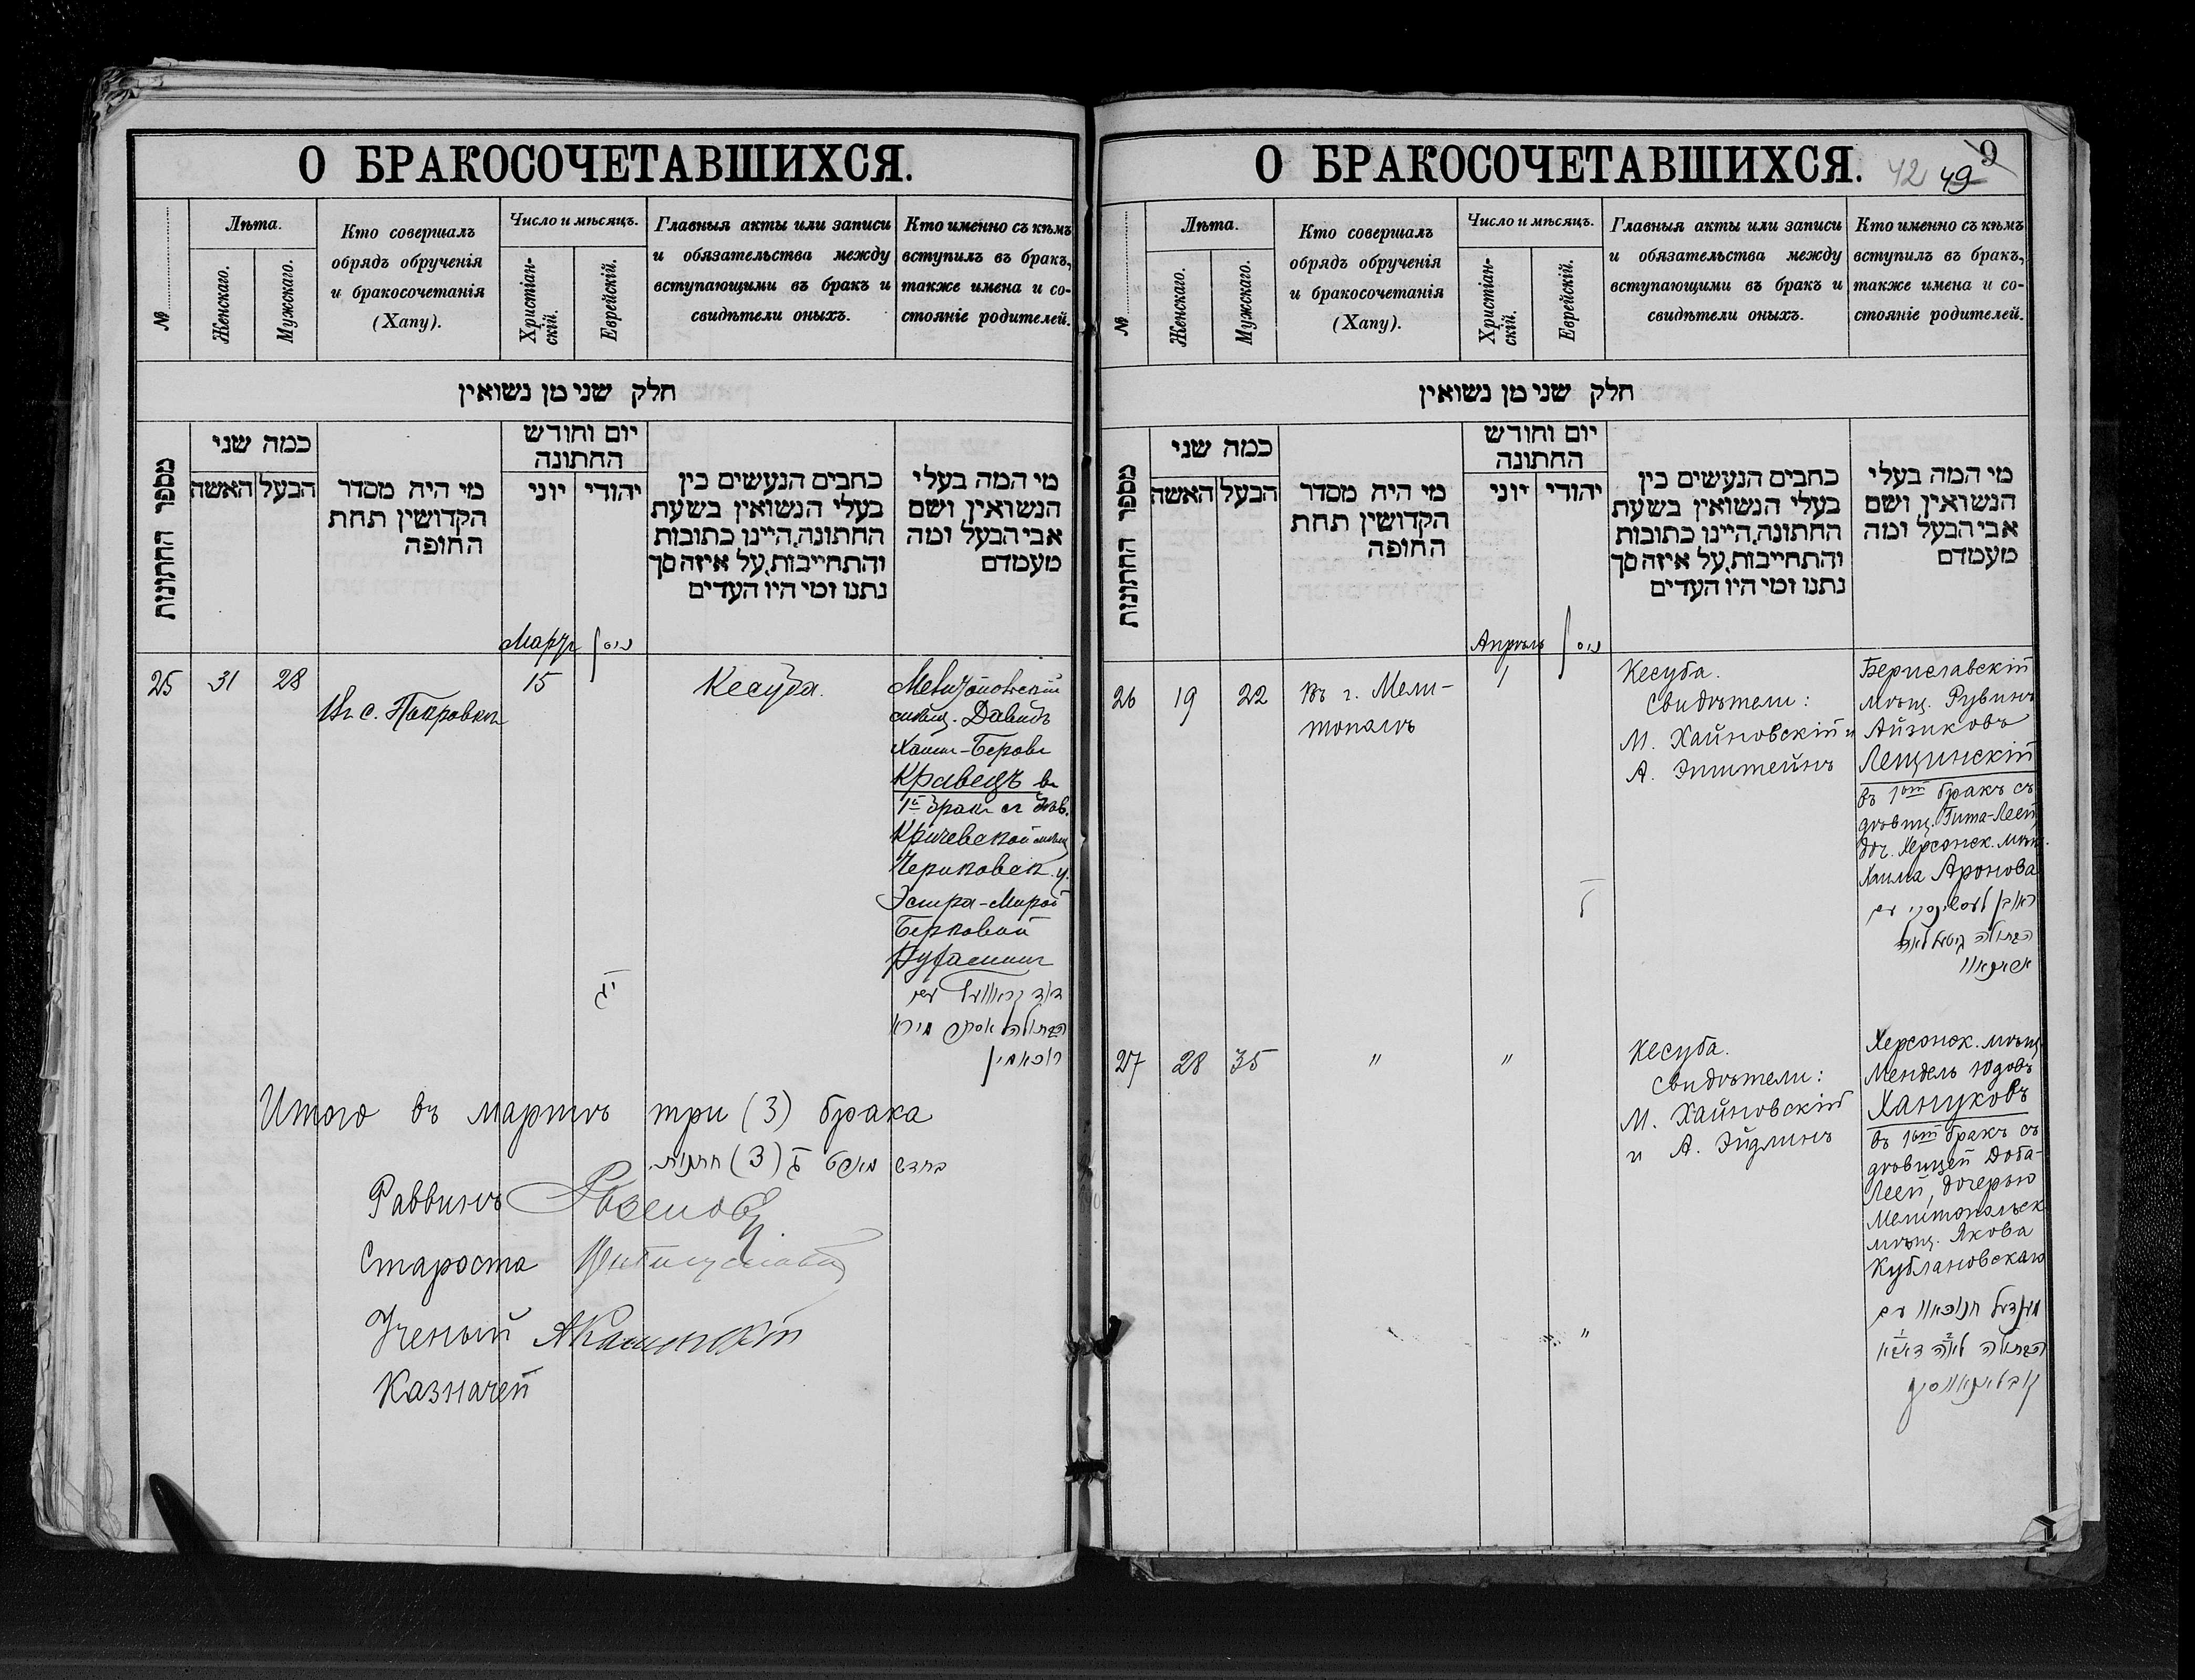 О БРАКОСОЧЕТАВШИХСЯ.
№
Лѣта.
Женскаго.
Мужскаго.
Кто совершалъ
обрядъ обрученія
и бракосочетанія
(Хапу).
Число и мѣсяцъ.
Христіан-
скій.
Еврейскій.
Главныя акты или записи
и обязательства между
вступающими въ бракъ и
свидѣтели оныхъ.
Кто именно съ кѣмъ
вступилъ въ бракъ,
также имена и со-
стояніе родителей.
חלק שני מן נשואין
מספר החתונות
כמה שני
האשה
הבעל
מי היה מסדר
הקדושין תחת
החופה
יום וחודש
החתונה
יוני
יהודי
כתבים הנעשים בין
בעלי הנשואין בשעת
החתונה, היינו כתובות
והתחייבות, על איזה סך
נתנו ומי היו העדים
מי המה בעלי
הנשואין ושם
אבי הבעל ומה
מעמדם
Мартъ
ניסן
25
31
28
Въ с. Покровкѣ
15
יג
Кесуба.
Давидъ
Хаим-Беровъ
Кравецъ въ
Кричевской
Чериковск. у.
Эстра-Мирой
Берковой
דוד
הבתולה אסתר מירא
Итого въ мартѣ три (3) брака
בחדש מארט ג (3) חתנות.
Раввинъ
Староста
Ученый
Казначей
О БРАКОСОЧЕТАВШИХСЯ.
42 49 9
№
Лѣта.
Женскаго.
Мужскаго.
Кто совершалъ
обрядъ обрученія
и бракосочетанія
(Хапу).
Число и мѣсяцъ.
Христіан-
скій.
Еврейскій.
Главныя акты или записи
и обязательства между
вступающими въ бракъ и
свидѣтели оныхъ.
Кто именно съ кѣмъ
вступилъ въ бракъ,
также имена и со-
стояніе родителей.
חלק שני מן נשואין
מספר החתונות
כמה שני
האשה
הבעל
מי היה מסדר
הקדושין תחת
החופה
יום וחודש
החתונה
יוני
יהודי
כתבים הנעשים בין
בעלי הנשואין בשעת
החתונה, היינו כתובות
והתחייבות, על איזה סך
נתנו ומי היו העדים
מי המה בעלי
הנשואין ושם
אבי הבעל ומה
מעמדם
Апрѣль
ניסן
26
19
22
Въ г. Мели-
тополѣ
1
Кесуба.
Свидѣтели:
М. Хайновскій и
А. Эпштейнъ
Бериславскій
мѣщ. Рувинъ
Айзиковъ
Лещинскій
въ 1омъ бракѣ съ
дѣвиц. Гита-Леей,
доч. Херсонск. мѣщ.
Хаима Аронова
ראובן לעשצינסקי עם
הבתולה גיטא לאה
27
28
35
"
"
"
Кесуба.
Свидѣтели:
М. Хайновскій
и А. Эйдлинъ
Херсонск. мѣщ.
Мендель Юдовъ
Хануковъ
въ 1омъ бракѣ съ
дѣвицей Доба-
Леей, дочерью
Мелитопольск.
мѣщ. Якова
Кублановскаго
מענדעל חנוכאוו עם
הבתולה לאה דאבא
קובלאנאווסקי